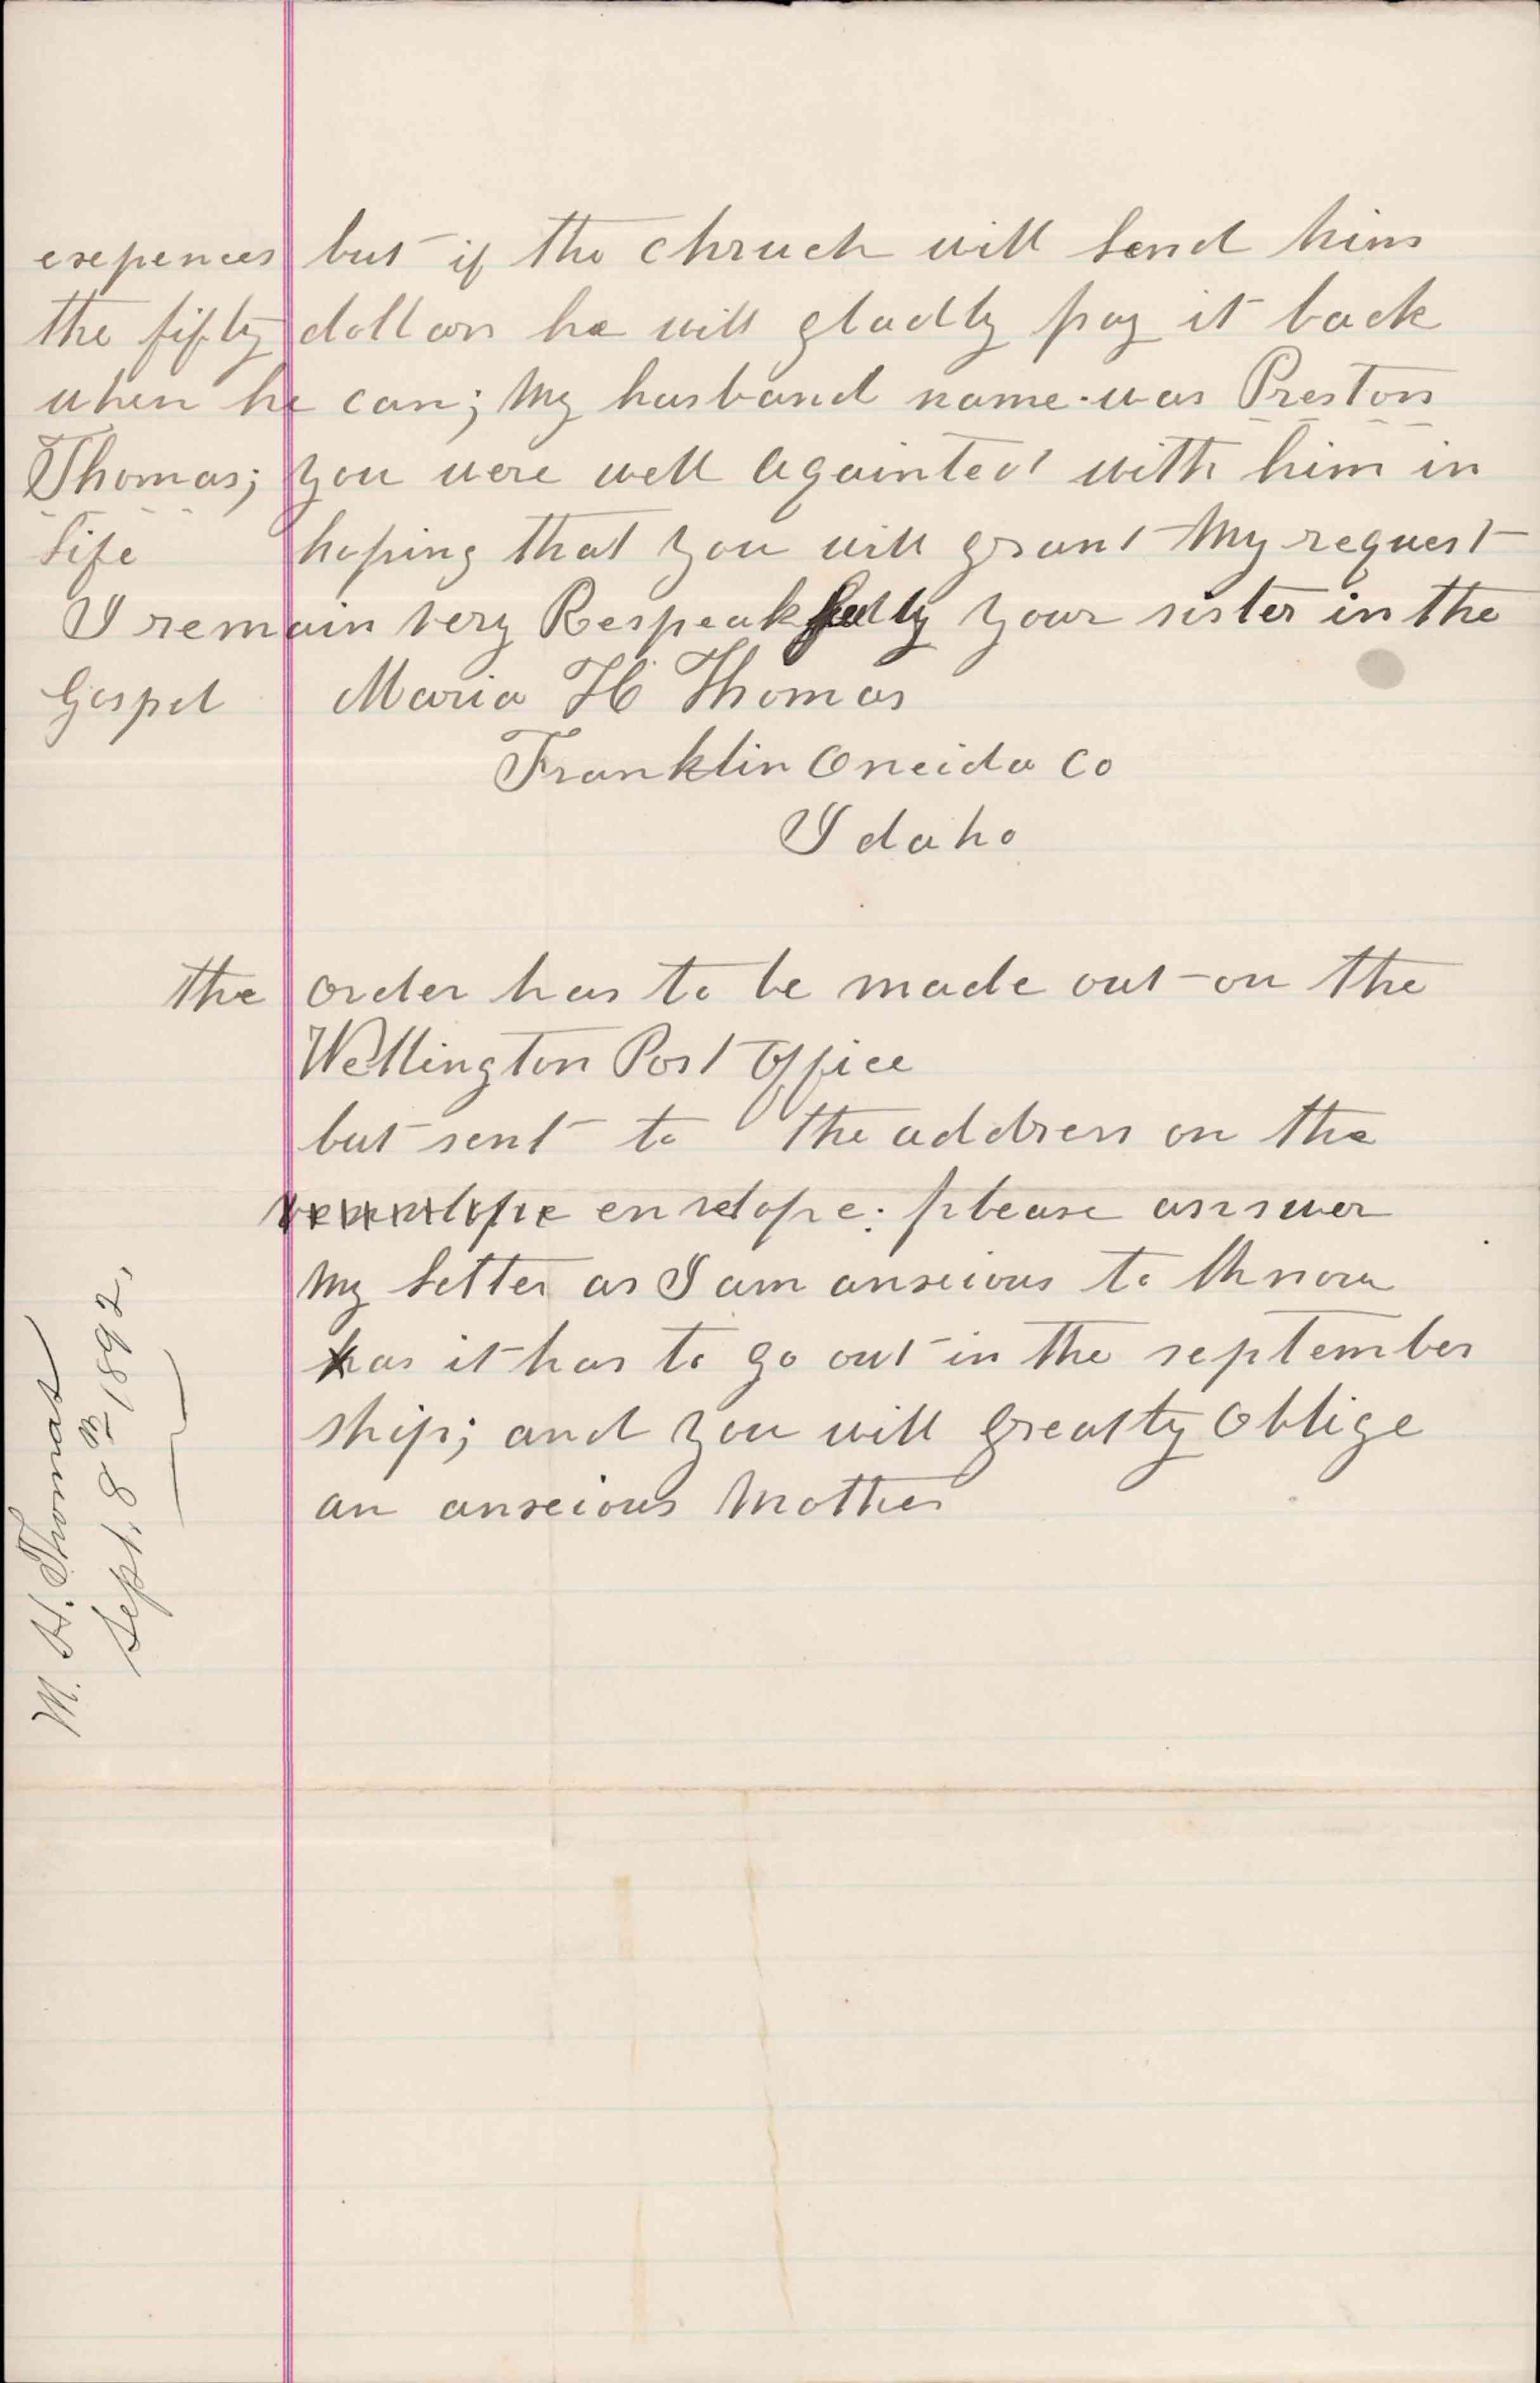 exepences but if the Chruch will Send him
the fifty dollars he will gladly pay it back
when he can; My husband name was Preston
Thomas; you were well aqainted with him in
Life hoping that you will grant My request
I remain very Respeakfully your sister in the
Gospel Maria H Thomas
Franklin Oneida Co
Idaho
the order has to be made out on the
Wellington Post Office
but sent to the address on the
envelope: please answer
My Letter as I am anxious to know
as it has to go out in the september
ship; and you will Greatly Oblige
an anxcious Mother
M. H. Thomas
Sept. 8th 1892,